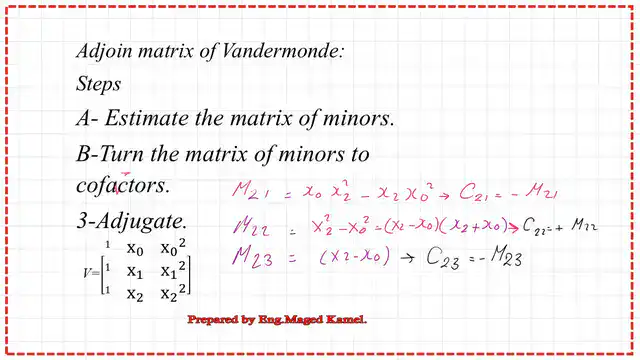 Adjoin matrix of Vandermonde:
Steps
A- Estimate the matrix of minors.
B-Turn the matrix of minors to
cofactors.
3-Adjugate.
V=[1 x₀ x₀²
1 x₁ x₁²
1 x₂ x₂²]
M₂₁ = x₀ x₂² − x₂ x₀² → C₂₁ = − M₂₁
M₂₂ = x₂² − x₀² = (x₂ − x₀)(x₂ + x₀) → C₂₂ = + M₂₂
M₂₃ = (x₂ − x₀) → C₂₃ = − M₂₃
Prepared by Eng.Maged Kamel.